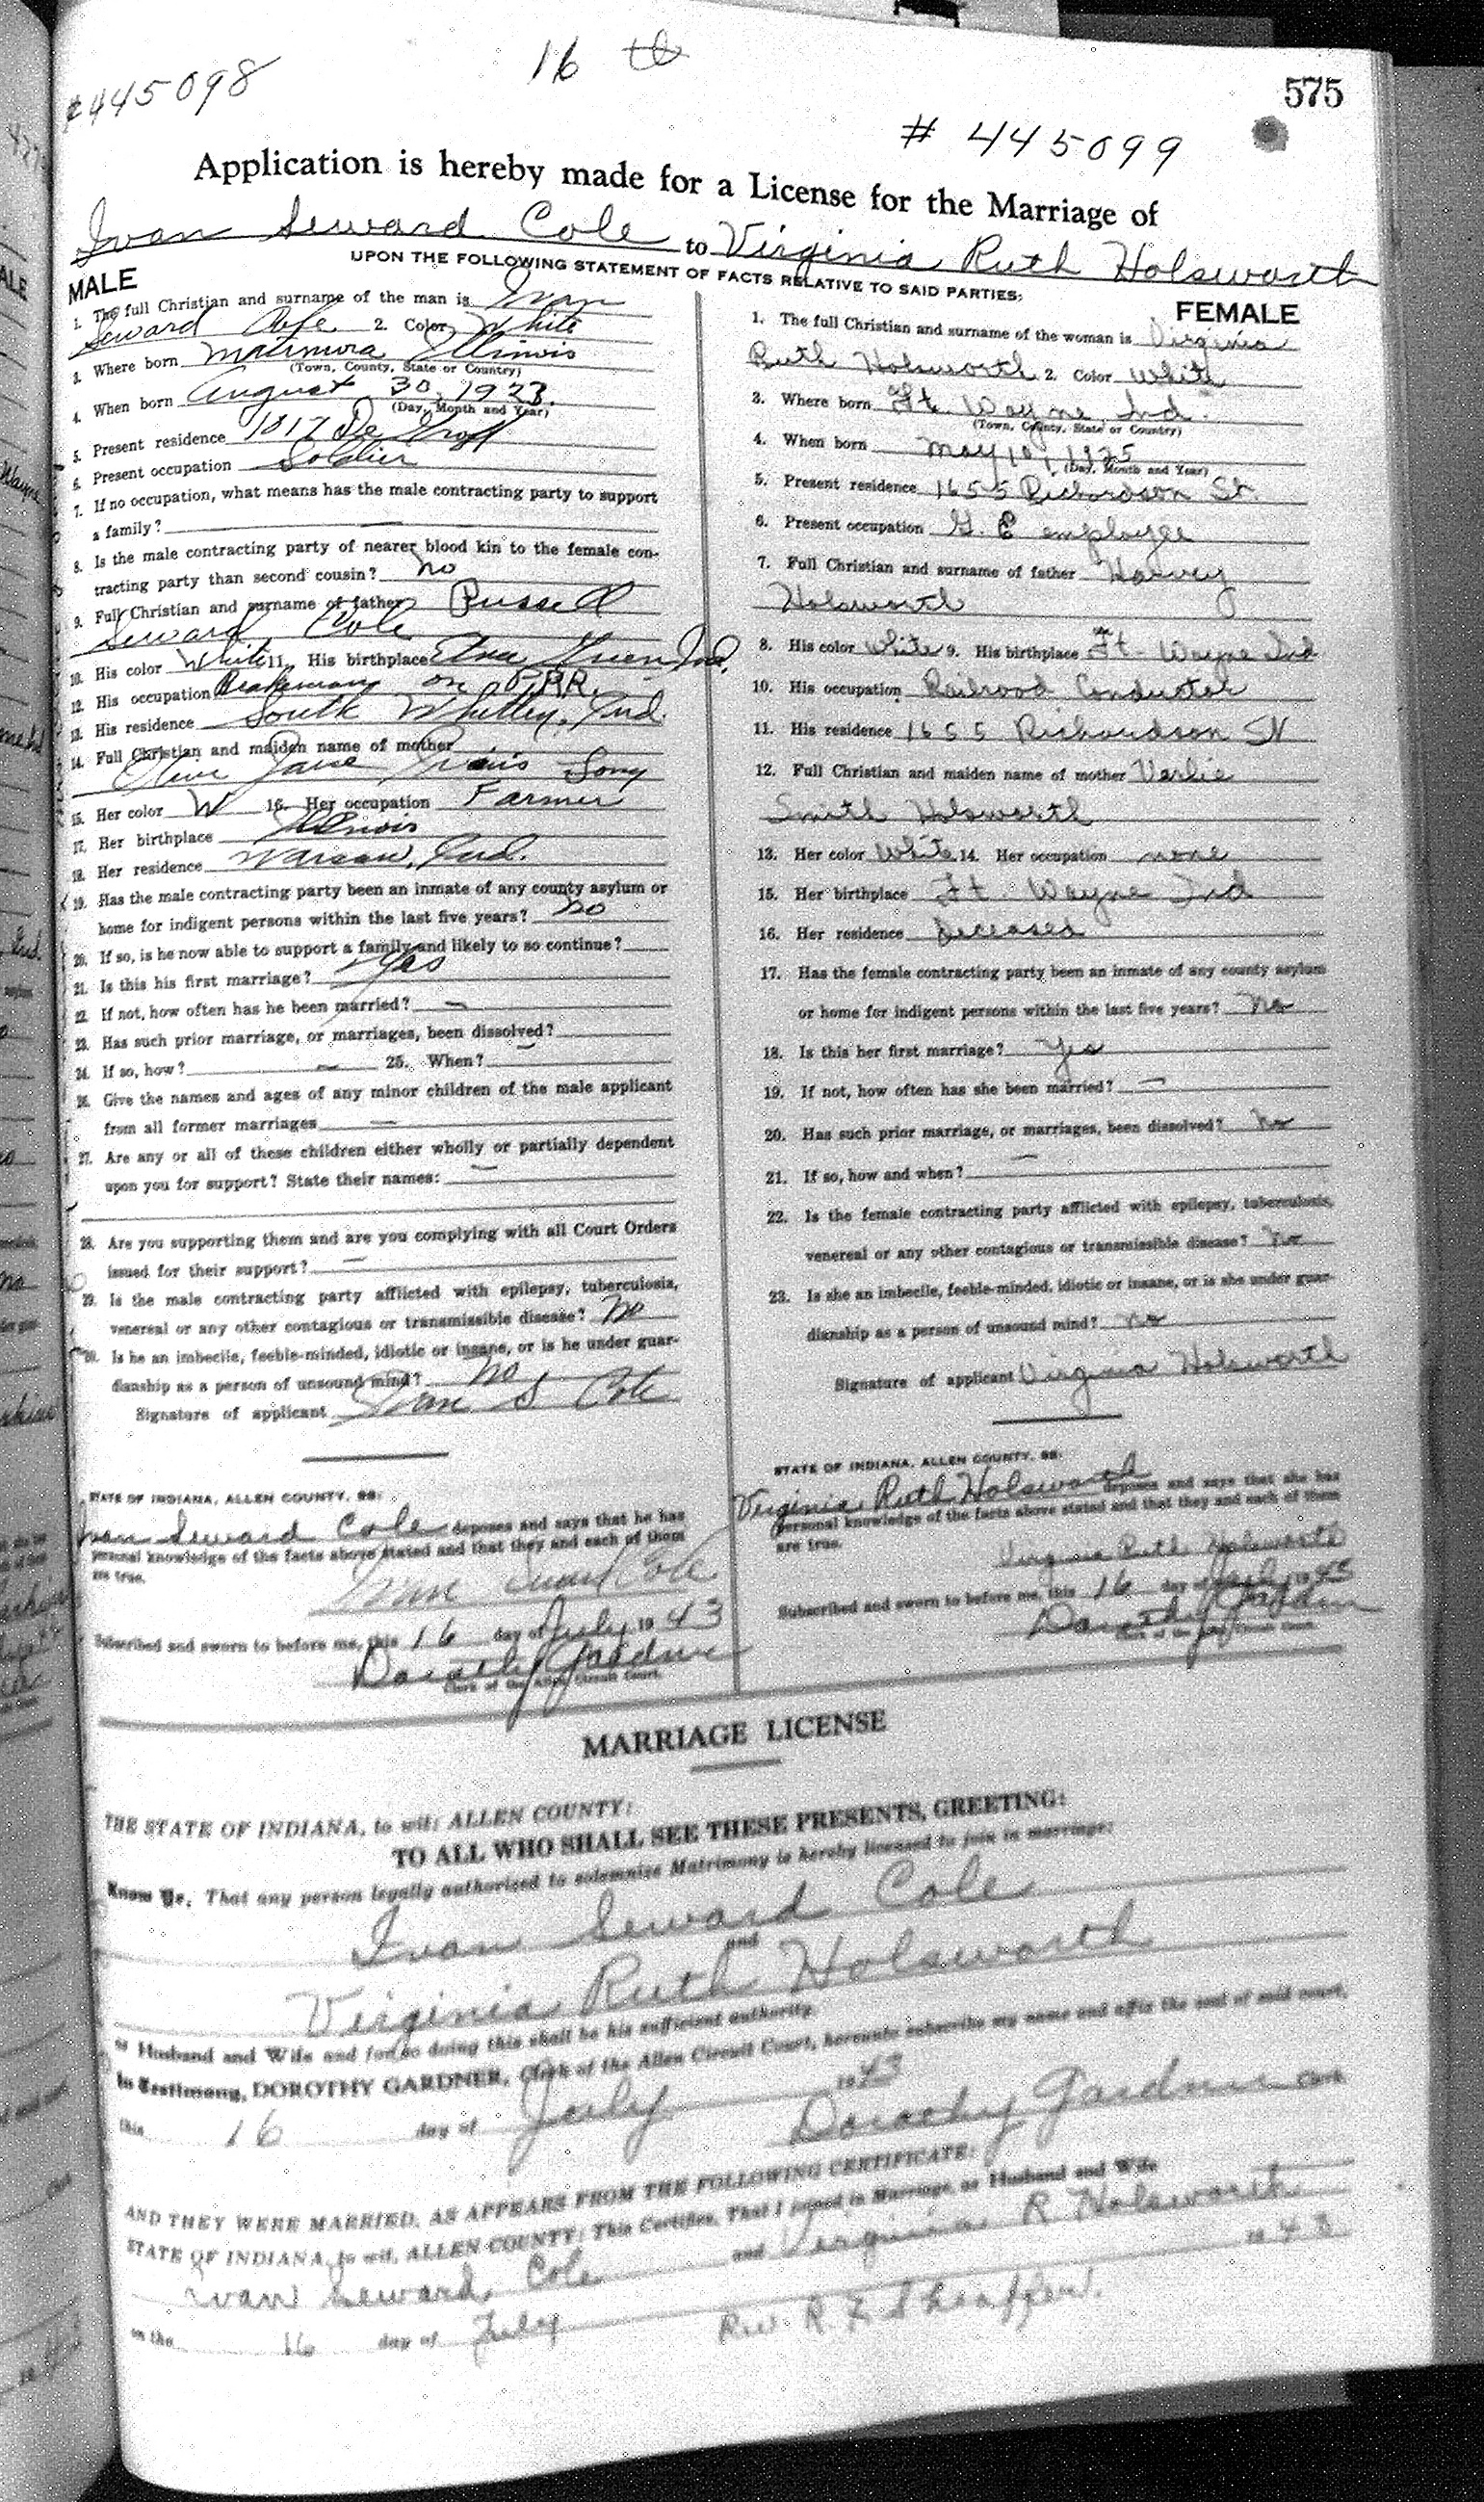 16 th
#445098
575
# 445099
Application is hereby made for a License for the Marriage of
Ivan Seward Cole to Virginia Ruth Holsworth
UPON THE FOLLOWING STATEMENT OF FACTS RELATIVE TO SAID PARTIES:
MALE
1. The full Christian and surname of the man is Ivan
Seward Cole 2. Color White
3. Where born Illinois
(Town, County, State or Country)
4. When born August 30, 1923.
(Day, Month and Year)
5. Present residence 1017 De
6. Present occupation Soldier
7. If no occupation, what means has the male contracting party to support
a family? —
8. Is the male contracting party of nearer blood kin to the female con-
tracting party than second cousin? no
9. Full Christian and surname of father Russell
Seward Cole
10. His color White 11. His birthplace Etna Ind.
12. His occupation Brakeman on P.RR.
13. His residence South Whitley, Ind.
14. Full Christian and maiden name of mother
Jane Long
15. Her color W 16. Her occupation Farmer
17. Her birthplace Illinois
18. Her residence Warsaw, Ind.
19. Has the male contracting party been an inmate of any county asylum or
home for indigent persons within the last five years? no
20. If so, is he now able to support a family and likely to so continue?
21. Is this his first marriage? Yes
22. If not, how often has he been married? —
23. Has such prior marriage, or marriages, been dissolved?
24. If so, how? — 25. When? —
26. Give the names and ages of any minor children of the male applicant
from all former marriages —
27. Are any or all of these children either wholly or partially dependent
upon you for support? State their names: —
28. Are you supporting them and are you complying with all Court Orders
issued for their support? —
29. Is the male contracting party afflicted with epilepsy, tuberculosis,
venereal or any other contagious or transmissible disease? No
30. Is he an imbecile, feeble-minded, idiotic or insane, or is he under guar-
dianship as a person of unsound mind? No
Signature of applicant Ivan S Cole
STATE OF INDIANA, ALLEN COUNTY, SS:
Ivan Seward Cole deposes and says that he has
personal knowledge of the facts above stated and that they and each of them
are true.
Ivan Seward Cole
Subscribed and sworn to before me, this 16 day of July 19 43
Dorothy Gardner
Clerk of the Allen Circuit Court.
FEMALE
1. The full Christian and surname of the woman is Virginia
Ruth Holsworth 2. Color White
3. Where born Ft. Wayne Ind.
(Town, County, State or Country)
4. When born May 10, 1925
(Day, Month and Year)
5. Present residence 1655 Richardson St.
6. Present occupation G. E employee
7. Full Christian and surname of father Harvey
Holsworth
8. His color White 9. His birthplace Ft. Wayne Ind
10. His occupation Railroad Conductor
11. His residence 1655 Richardson St
12. Full Christian and maiden name of mother Verlie
Smith Holsworth
13. Her color White 14. Her occupation none
15. Her birthplace Ft. Wayne Ind
16. Her residence Deceased
17. Has the female contracting party been an inmate of any county asylum
or home for indigent persons within the last five years? no
18. Is this her first marriage? Yes
19. If not, how often has she been married? —
20. Has such prior marriage, or marriages, been dissolved? no
21. If so, how and when? —
22. Is the female contracting party afflicted with epilepsy, tuberculosis,
venereal or any other contagious or transmissible disease? no
23. Is she an imbecile, feeble-minded, idiotic or insane, or is she under guar-
dianship as a person of unsound mind? no
Signature of applicant Virginia Holsworth
STATE OF INDIANA, ALLEN COUNTY, SS:
Virginia Ruth Holsworth deposes and says that she has
personal knowledge of the facts above stated and that they and each of them
are true.
Virginia Ruth Holsworth
Subscribed and sworn to before me, this 16 day of July 19 43
Dorothy Gardner
Clerk of the Allen Circuit Court.
MARRIAGE LICENSE
THE STATE OF INDIANA, to wit: ALLEN COUNTY:
TO ALL WHO SHALL SEE THESE PRESENTS, GREETING:
Know Ye, That any person legally authorized to solemnize Matrimony is hereby licensed to join in marriage:
Ivan Seward Cole
and
Virginia Ruth Holsworth
as Husband and Wife and for so doing this shall be his sufficient authority.
In Testimony, DOROTHY GARDNER, Clerk of the Allen Circuit Court, hereunto subscribe my name and affix the seal of said court,
this 16 day of July 19 43
Dorothy Gardner
AND THEY WERE MARRIED, AS APPEARS FROM THE FOLLOWING CERTIFICATE:
STATE OF INDIANA, to wit, ALLEN COUNTY: This Certifies, That I joined in Marriage, as Husband and Wife
Ivan Seward Cole and Virginia R Holsworth
on the 16 day of July 19 43
Rev. R. F. Sheaffer.